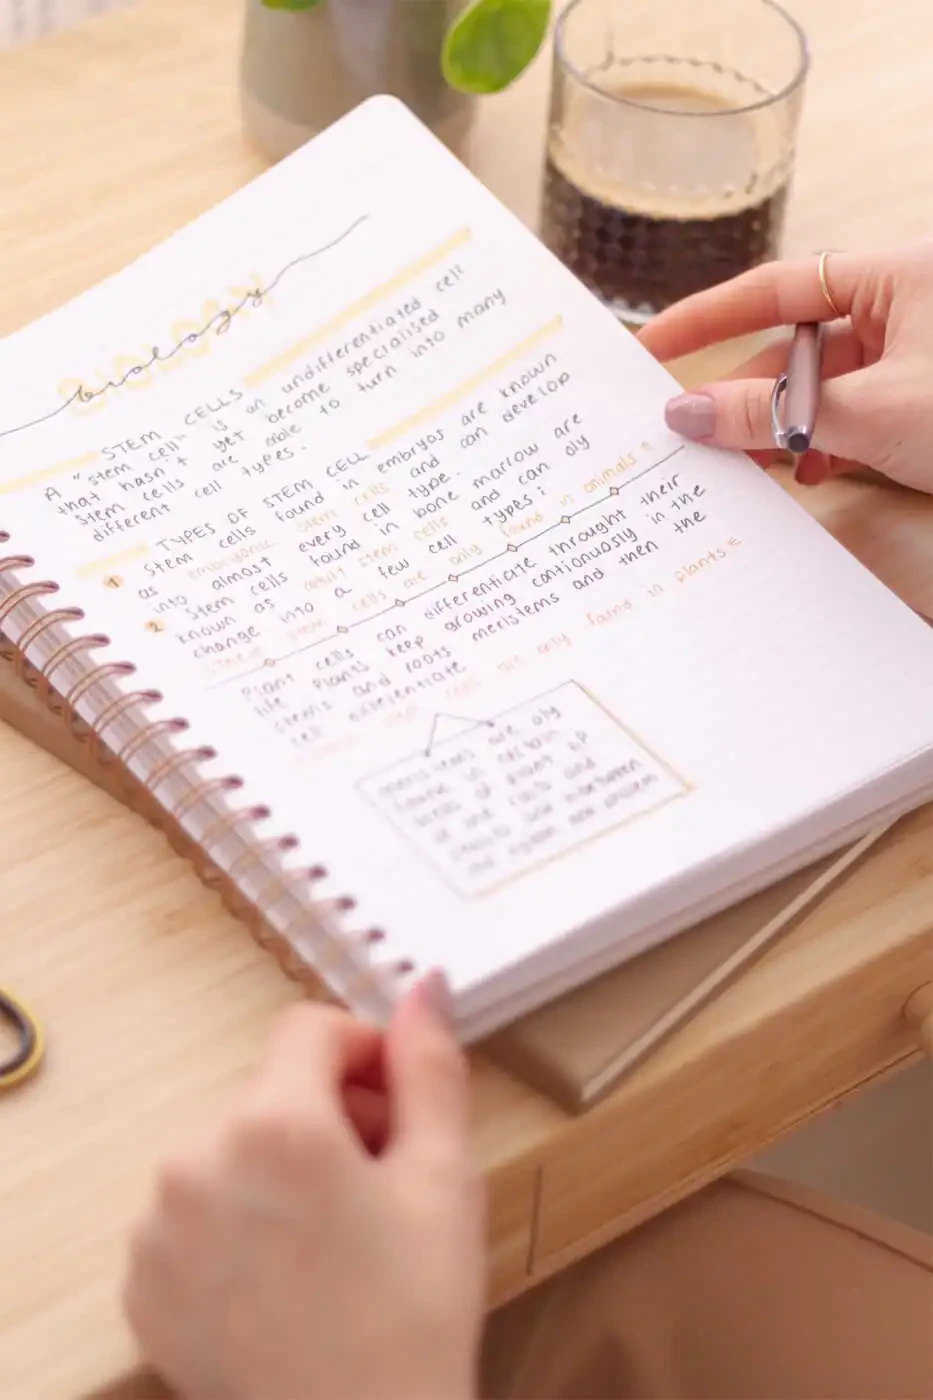 BIOLOGY
biology
STEM CELLS
A "stem cell" is an undifferentiated cell
that hasn't yet become specialised
stem cells are able to turn into many
different cell types.
TYPES OF STEM CELL
1 Stem cells found in embryos are known
as embryonic stem cells and can develop
into almost every cell type.
2 Stem cells found in bone marrow are
known as adult stem cells and can oly
change into a few cell types:
These stem cells are only found in animals
Plant cells can differentiate throught their
life Plants keep growing continously in the
stems and roots meristems and then the
cell differentiate
are only found in plants
meristems are oly
found in certain
areas of plant